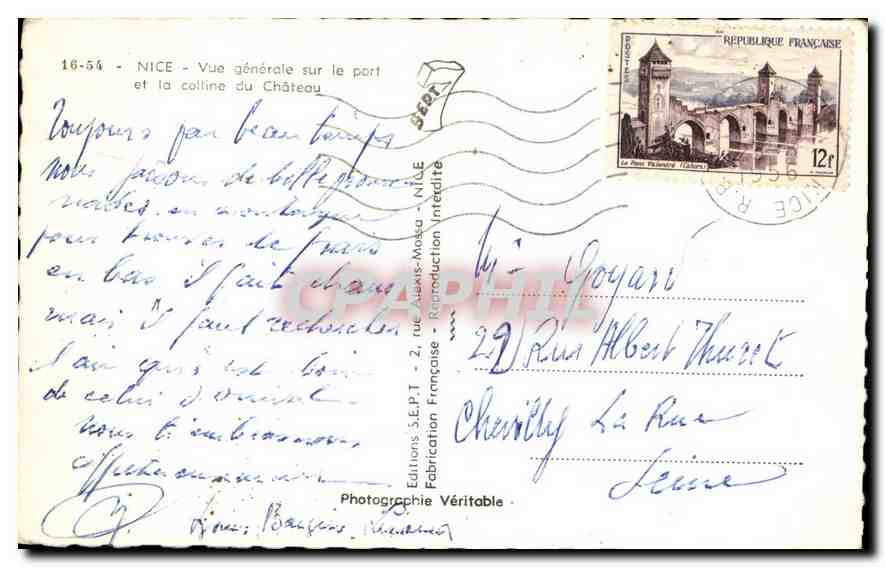 16-54 - NICE - Vue générale sur le port
et la colline du Château
SEPT
POSTES
REPUBLIQUE FRANÇAISE
Le Pont Valentré (Cahors)
12F
NICE R.P
Toujours pas beau temps
nous faisons de belle prome
nades en montagne
pour trouver le frais
en bas il fait chaud
mais il faut rechercher
l'air qui est loin
de celui
nous t'embrassons
affectueusement
Editions S.E.P.T - 2, rue Alexis-Mossa - NICE
Fabrication Française - Reproduction Interdite
Goyard
29 Rue Albert Thuret
Chevilly La Rue
Seine
Photographie Véritable
CPAPHIL